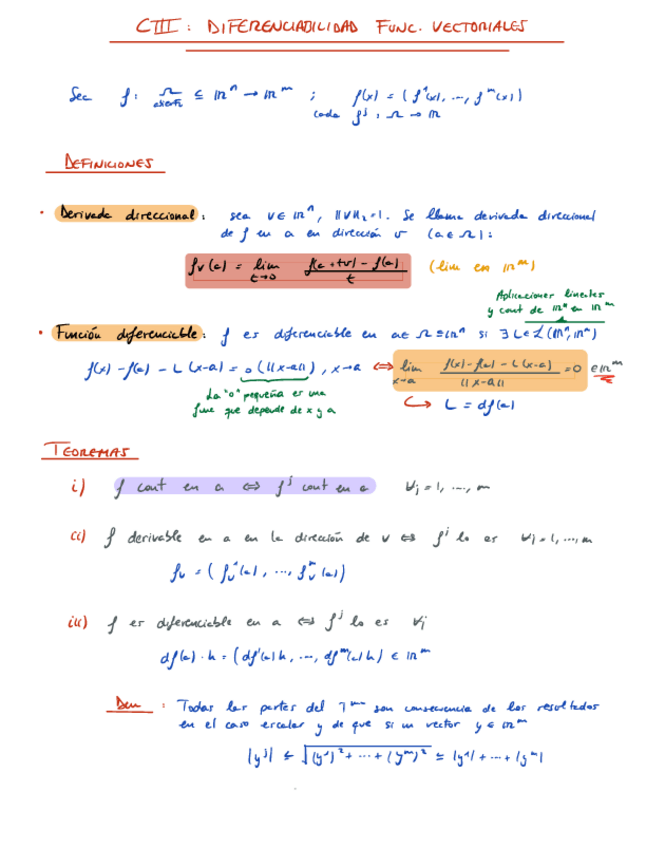 CIII: DIFERENCIABILIDAD FUNC. VECTORIALES
Sea f: Ω ⊆ ℝⁿ → ℝᵐ ; f(x) = (f¹(x), ..., fᵐ(x))
abierto cada fʲ: Ω → ℝ
DEFINICIONES
• Derivada direccional: sea v ∈ ℝⁿ, ||v||₂ = 1. Se llama derivada direccional
de f en a en dirección v (a ∈ Ω):
fv(a) = lim t→0 (f(a+tv) - f(a)) / t (lim en ℝᵐ)
Aplicaciones lineales
y cont de ℝⁿ en ℝᵐ
• Función diferenciable: f es diferenciable en a ∈ Ω ⊆ ℝⁿ si ∃ L ∈ ℒ(ℝⁿ, ℝᵐ)
f(x) - f(a) - L(x-a) = o(||x-a||), x→a ⟺ lim x→a (f(x) - f(a) - L(x-a)) / ||x-a|| = 0 ∈ ℝᵐ
La "o" pequeña es una
func que depende de x y a
↪ L = df(a)
TEOREMAS
i) f cont en a ⟺ fʲ cont en a ∀j = 1, ..., m
ii) f derivable en a en la dirección de v ⟺ fʲ lo es ∀j = 1, ..., m
fv = (fv¹(a), ..., fvᵐ(a))
iii) f es diferenciable en a ⟺ fʲ lo es ∀j
df(a)·h = (df¹(a)h, ..., dfᵐ(a)h) ∈ ℝᵐ
Dem: Todas las partes del Tᵐᵃ son consecuencia de los resultados
en el caso escalar y de que si un vector y ∈ ℝᵐ
|yʲ| ≤ √((y¹)² + ... + (yᵐ)²) ≤ |y¹| + ... + |yᵐ|